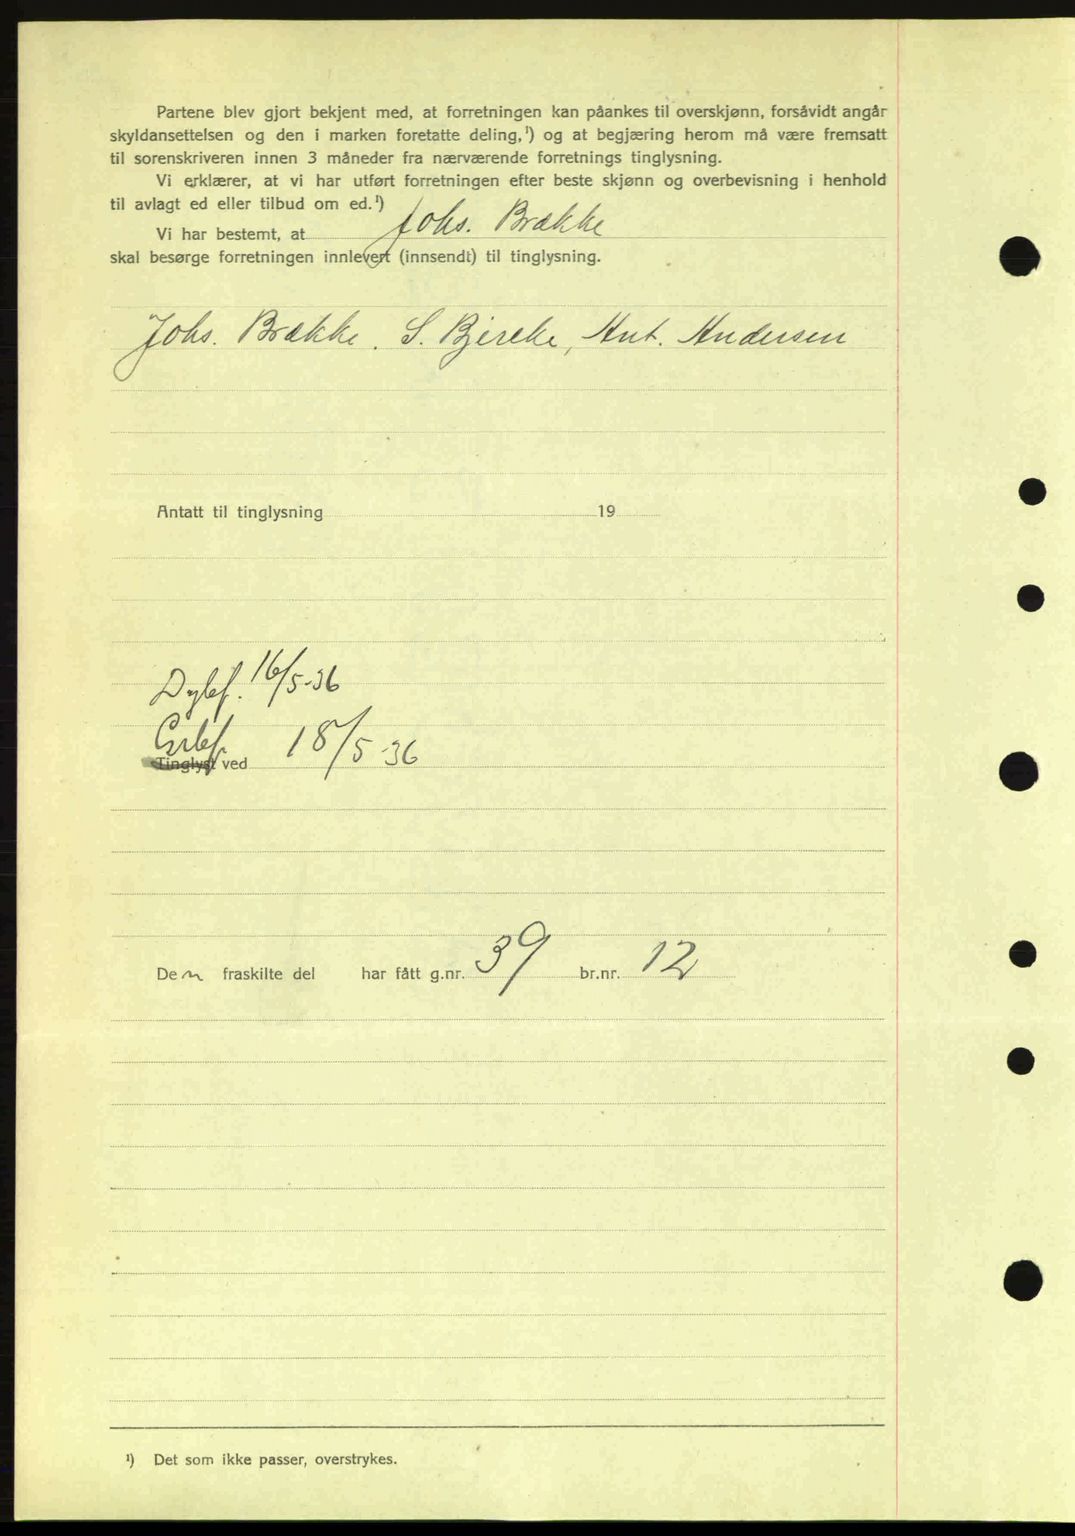 Partene blev gjort bekjent med, at forretningen kan påankes til overskjønn, forsåvidt angår
skyldansettelsen og den i marken foretatte deling,¹) og at begjæring herom må være fremsatt
til sorenskriveren innen 3 måneder fra nærværende forretnings tinglysning.
Vi erklærer, at vi har utført forretningen efter beste skjønn og overbevisning i henhold
til avlagt ed eller tilbud om ed.¹)
Vi har bestemt, at Johs. Brække
skal besørge forretningen innlevert (innsendt) til tinglysning.
Johs. Brække, S. Bjercke, Ant. Andersen
Antatt til tinglysning 19
Dgbf. 16/5-36
Grbf. 18/5-36
Tinglyst ved
Den fraskilte del har fått g.nr. 39 br.nr. 12
¹) Det som ikke passer, overstrykes.